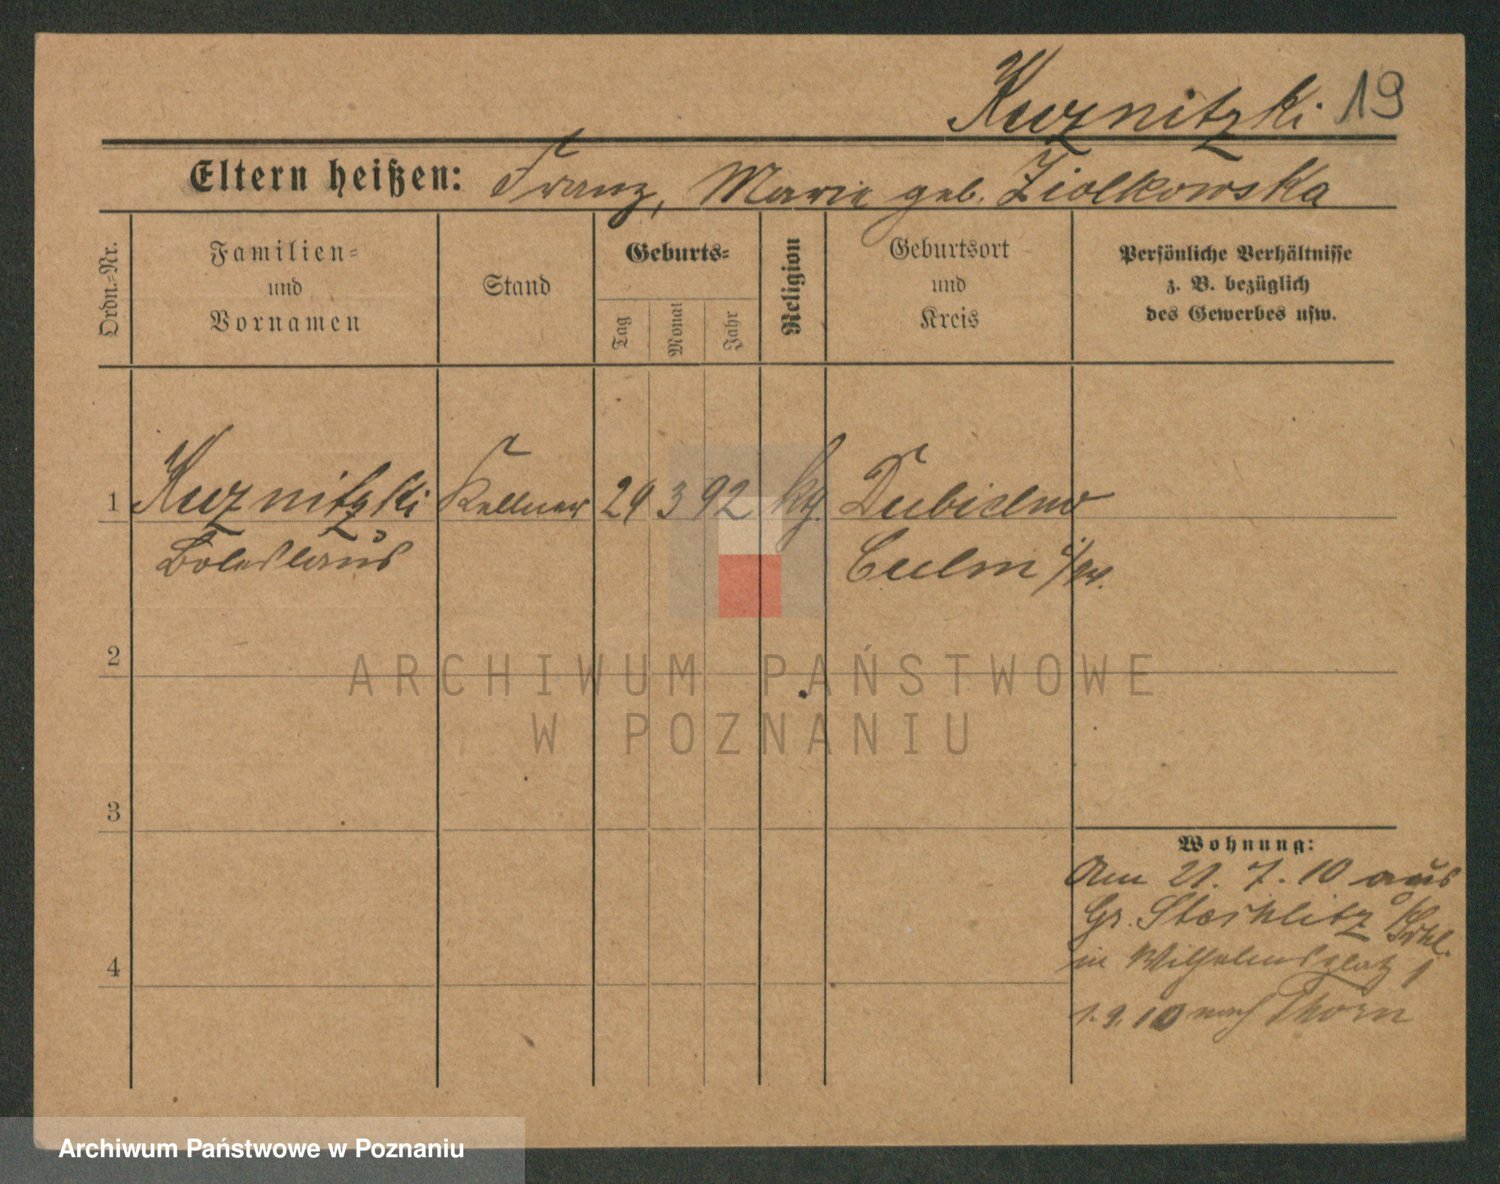 Kuznitzki 19
Eltern heißen: Franz, Marie geb. Ziolkowska
Ordn.-Nr.
Familien-
und
Vornamen
Stand
Geburts-
Tag
Monat
Jahr
Religion
Geburtsort
und
Kreis
Persönliche Verhältnisse
z. B. bezüglich
des Gewerbes usw.
1 Kuznitzki Kellner 29 3 92 kg. Dubielno
Boleslaus Culm
2
3
4
Wohnung:
Am 21. 7. 10 aus
Gr.
in Wilhelmsplatz 1
1.9.10 nach Thorn
ARCHIWUM PAŃSTWOWE
W POZNANIU
Archiwum Państwowe w Poznaniu